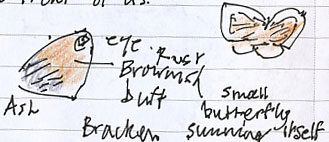 front of us.
eye
Brownish
buff
Ash
small
butterfly
sunning itself
Bracken